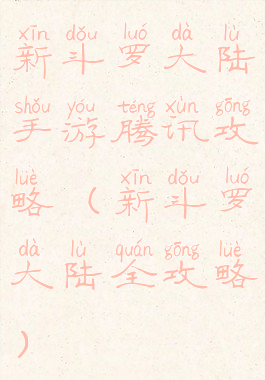 xīn dǒu luó dà lù
新斗罗大陆
shǒu yóu téng xùn gōng
手游腾讯攻
lüè xīn dǒu luó
略（新斗罗
dà lù quán gōng lüè
大陆全攻略
）